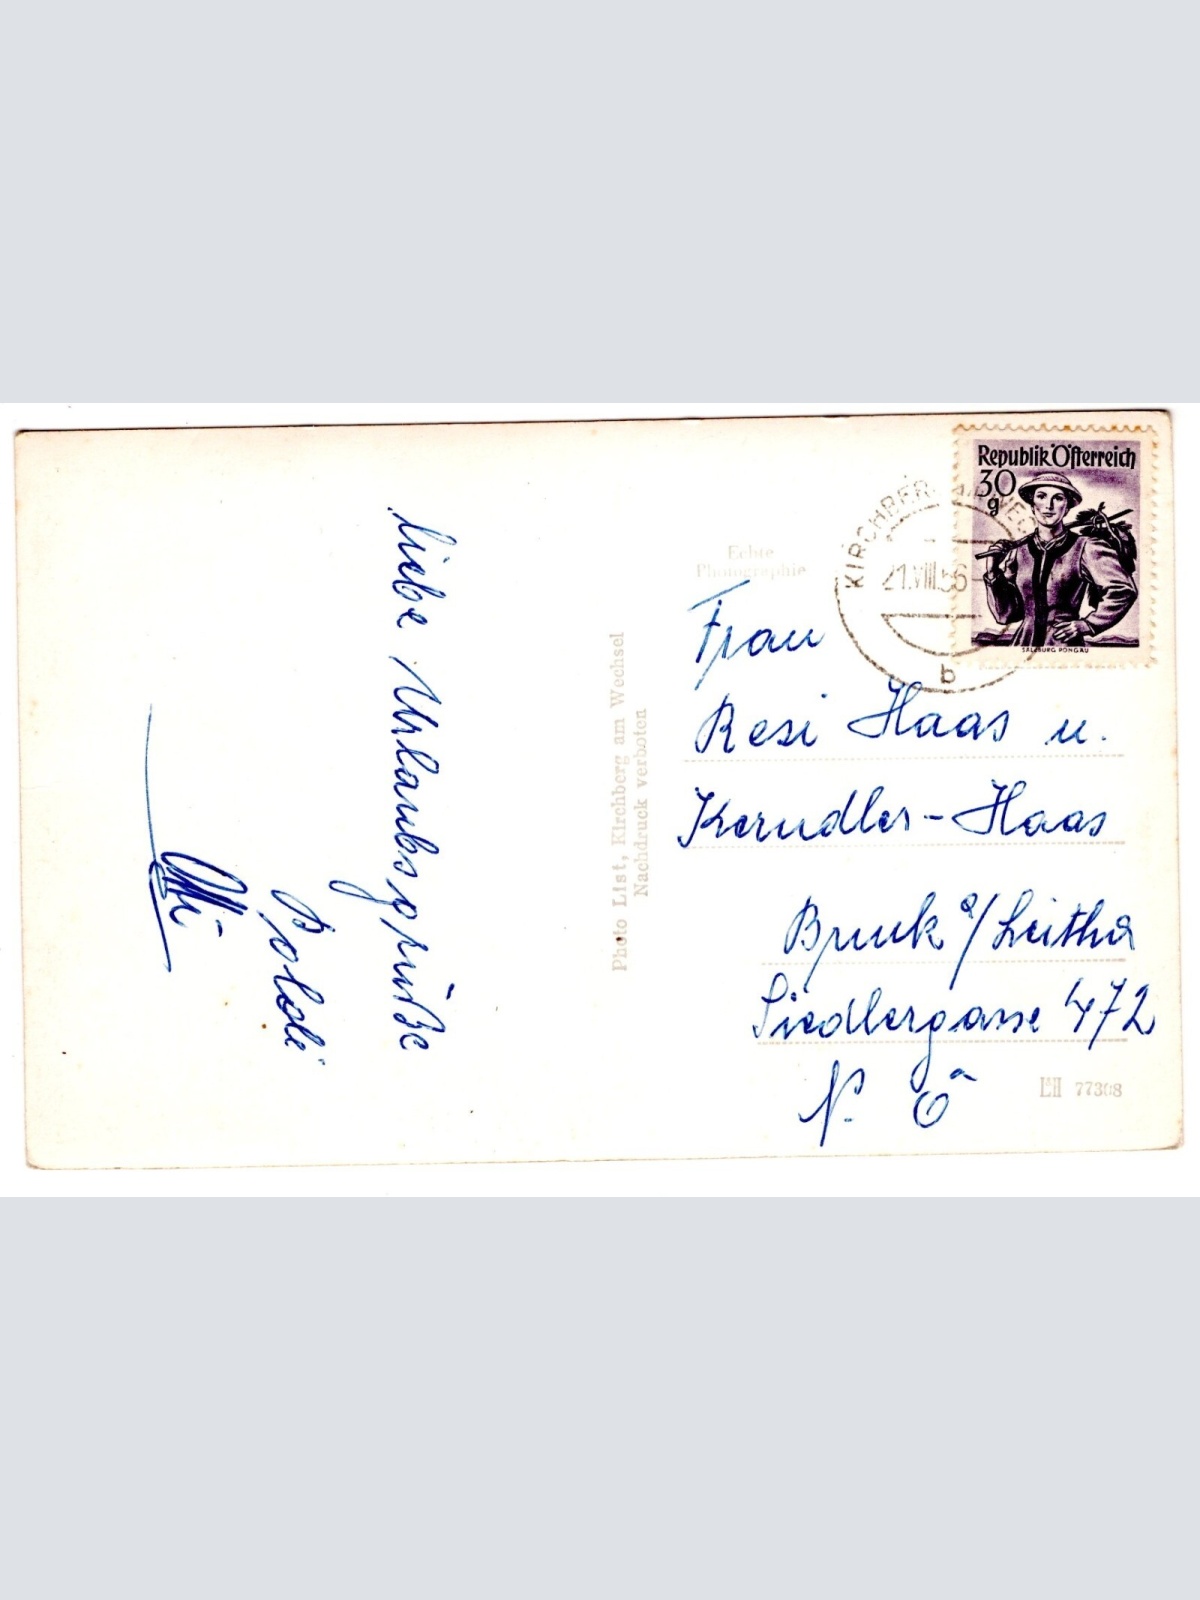 liebe Urlaubsgrüße
Poldi
Photo List, Kirchberg am Wechsel
Nachdruck verboten
Echte
Photographie
Republik Österreich
30
g
SALZBURG PONGAU
KIRCHBERG AM WECHSEL
21.VIII.56
b
Frau
Resi Haas u.
Kerndler-Haas
Bruck a/Leitha
Siedlergasse 472
N. Ö
77308